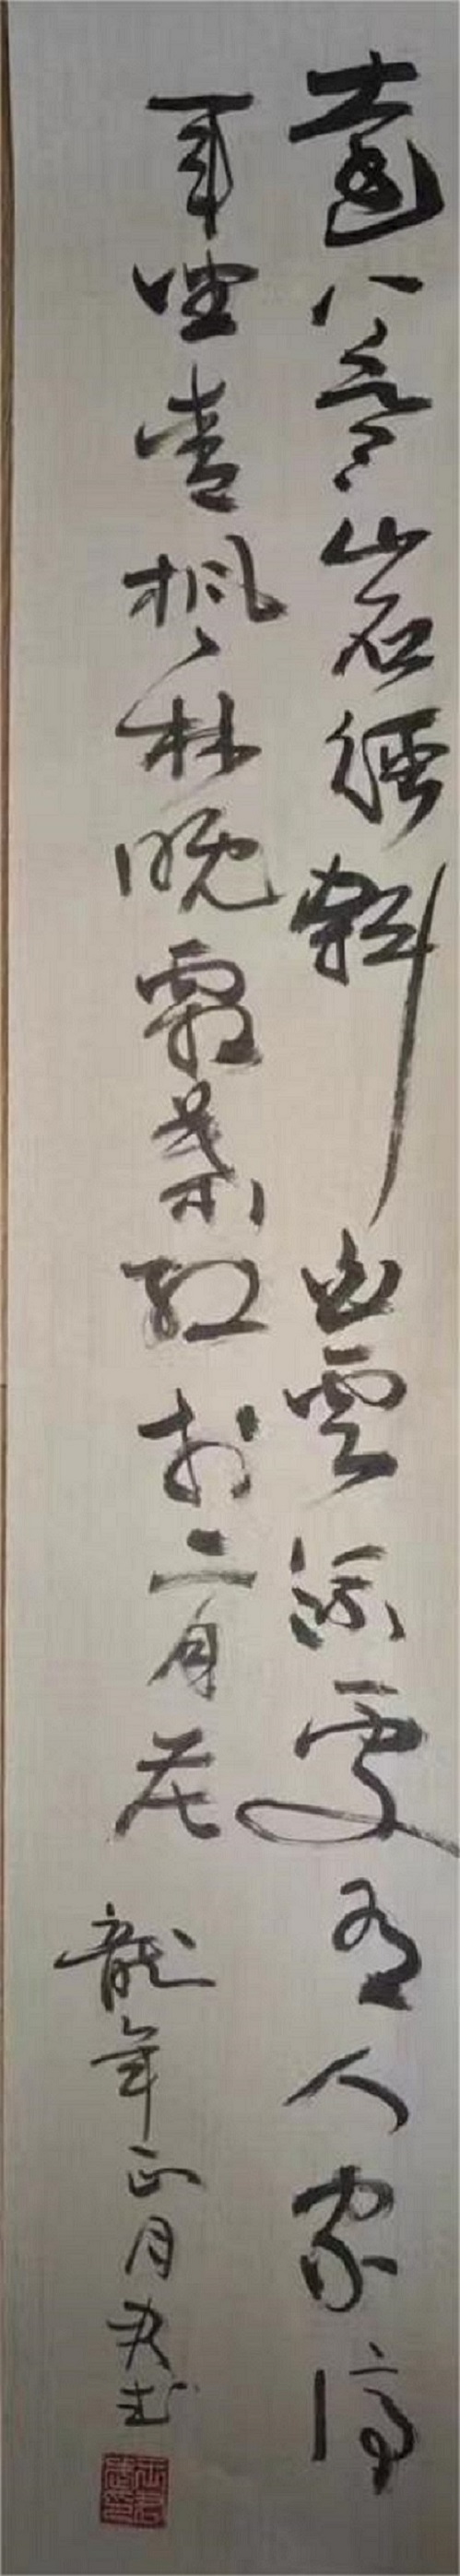 遠上寒山石徑斜白雲深處有人家停
車坐愛楓林晚霜葉紅於二月花
龍年正月